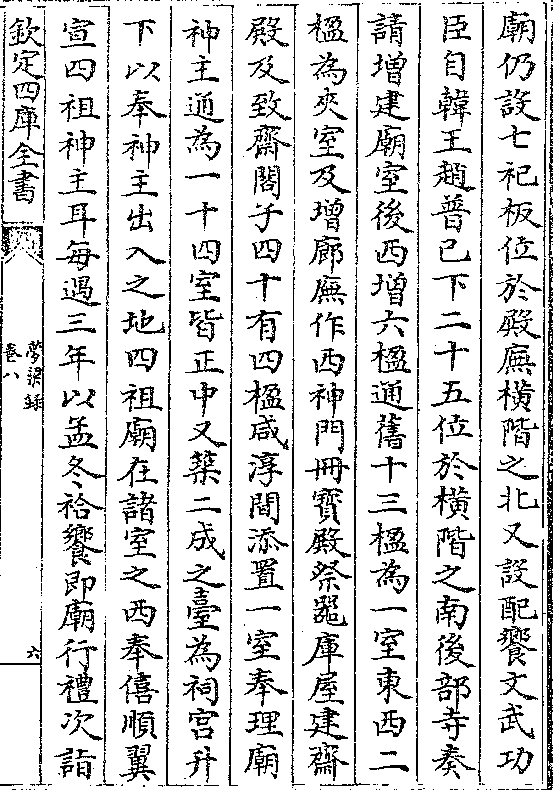 廟仍設七祀板位於殿廡横階之北又設配饗文武功
臣自韓王趙普已下二十五位於横階之南後部寺奏
請增建廟室後西增六楹通舊十三楹為一室東西二
楹為夾室及增廊廡作西神門冊寶殿祭器庫屋建齋
殿及致齋閤子四十有四楹咸淳間添置一室奉理廟
神主通為一十四室皆正中又築二成之臺為祠宫升
下以奉神主出入之地四祖廟在諸室之西奉僖順翼
宣四祖神主耳每遇三年以孟冬祫饗即廟行禮次詣
欽定四庫全書
夢粱録
卷八
六